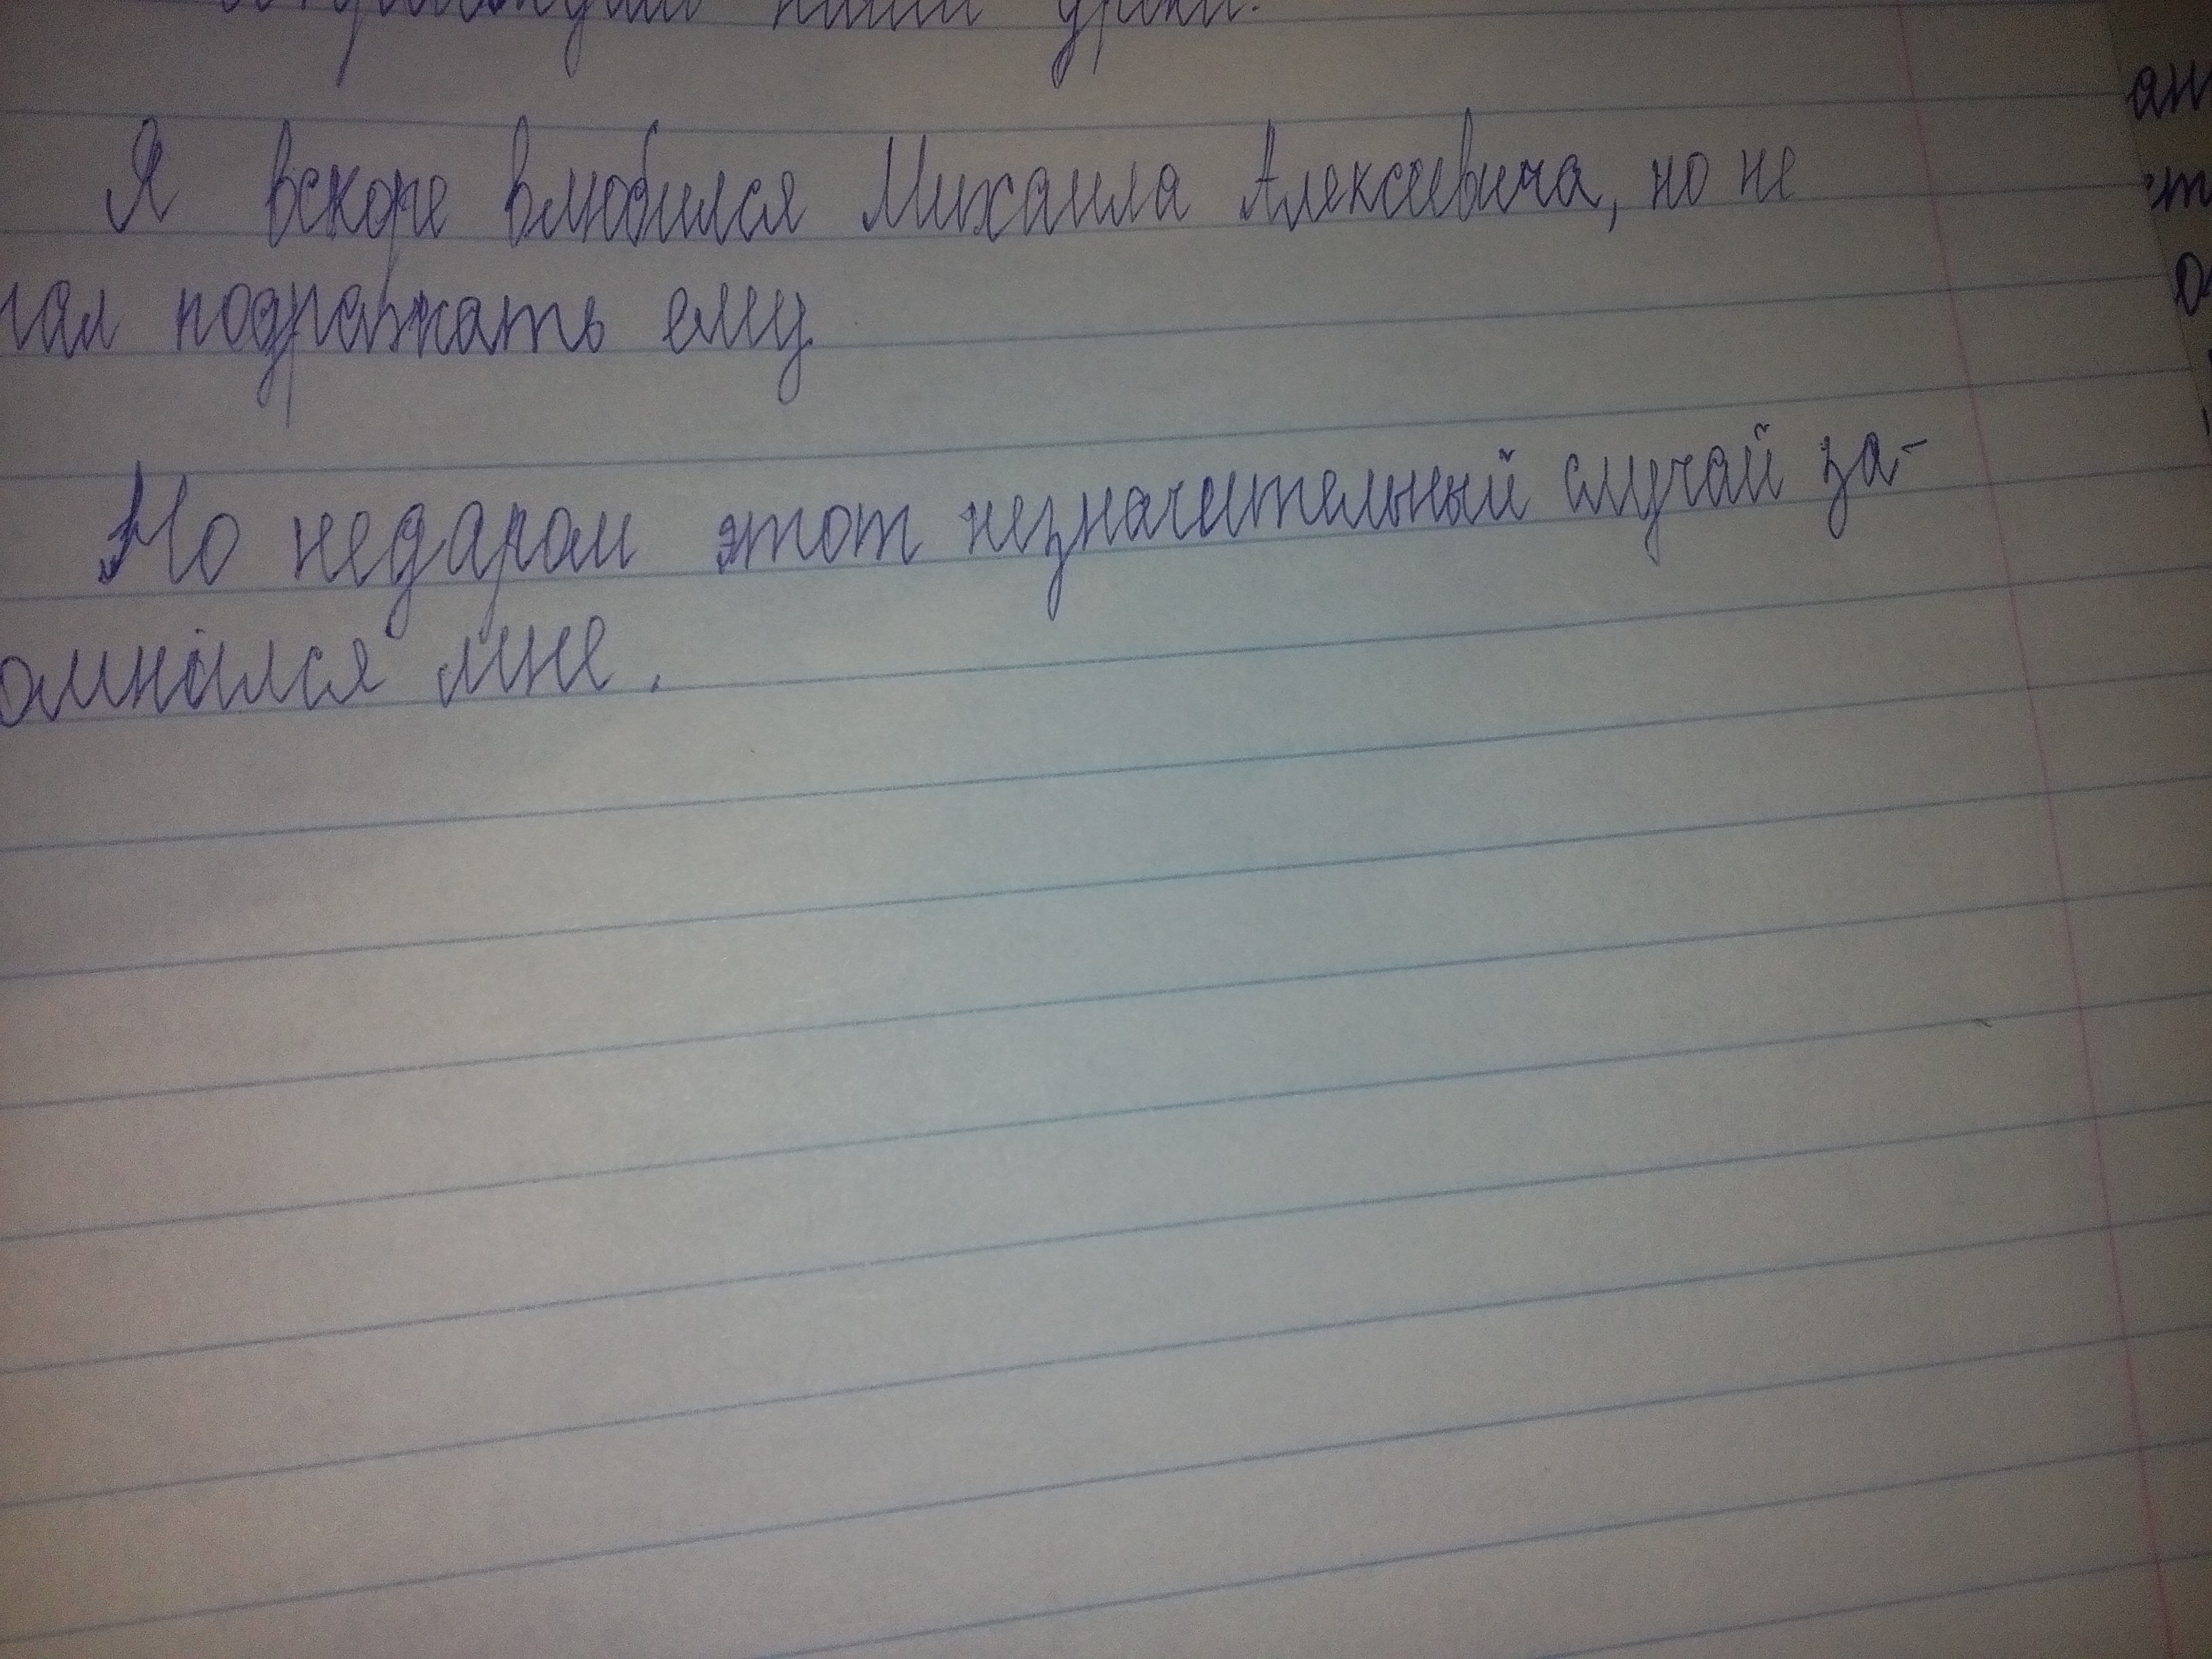 наши уроки.
Я вскоре влюбился Михаила Алексеевича, но не
подражать ему.
Но недаром этот незначительный случай за-
омнился мне.